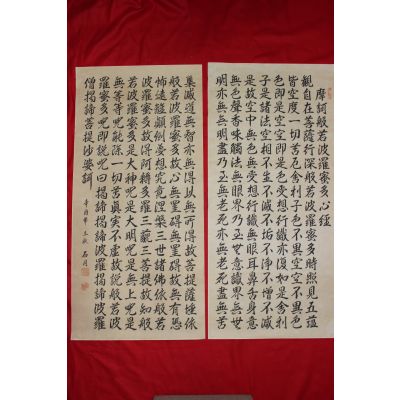 摩訶般若波羅蜜多心經
觀自在菩薩行深般若波羅蜜多時照見五蘊
皆空度一切苦厄舍利子色不異空空不異色
色即是空空即是色受想行識亦復如是舍利
子是諸法空相不生不滅不垢不淨不增不減
是故空中無色無受想行識無眼耳鼻舌身意
無色聲香味觸法無眼界乃至無意識界無
明亦無無明盡乃至無老死亦無老死盡無苦
集滅道無智亦無得以無所得故菩提薩埵依
般若波羅蜜多故心無罣碍無罣碍故無有恐
怖遠離顚倒夢想究竟涅槃三世諸佛依般若
波羅蜜多故得阿耨多羅三藐三菩提故知般
若波羅蜜多是大神呪是大明呪是無上呪是
無等等呪能除一切苦真實不虛故說般若波
羅蜜多呪即說呪曰揭諦揭諦波羅揭諦波羅
僧揭諦菩提沙婆訶
辛酉
石月